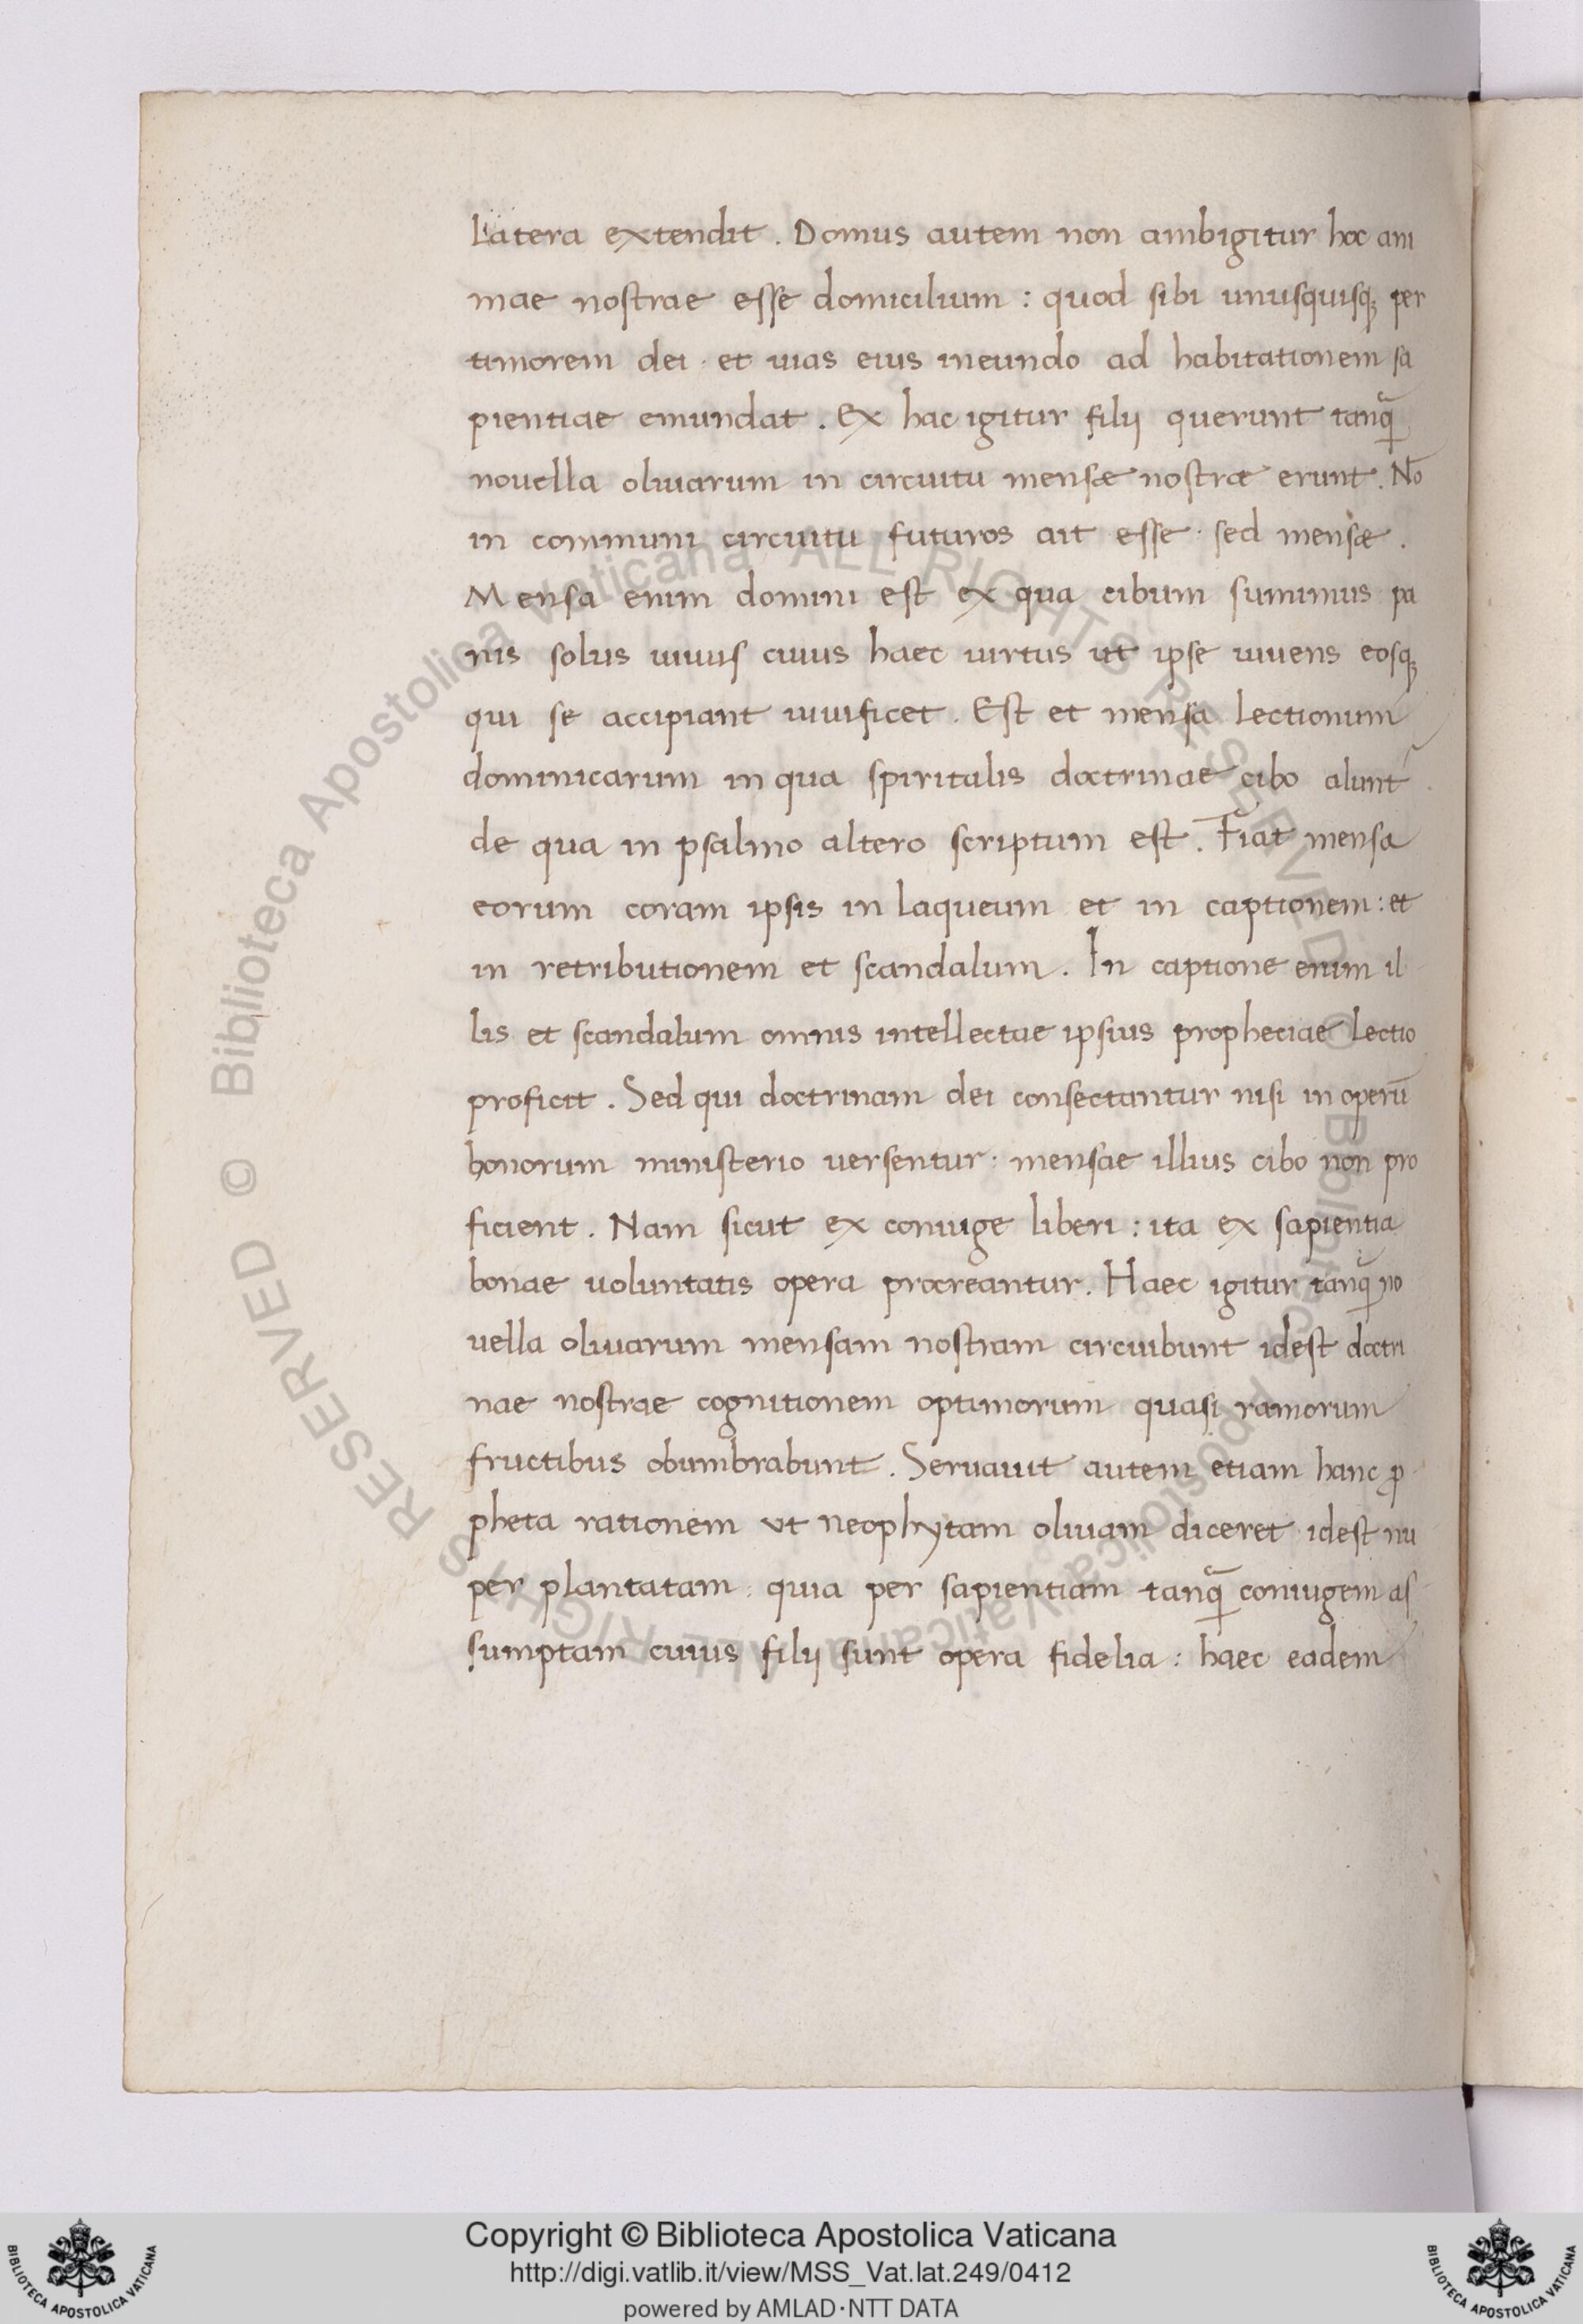 Latera extendit. Domus autem non ambigitur hoc ani
mae nostrae esse domicilium: quod sibi unusquisq; per
timorem dei· et uias eius ineundo ad habitationem sa
pientiae emundat. Ex hac igitur filij querunt tanq̃
nouella oliuarum in circuitu mensae nostrae erunt. Nō
in communi circuitu futuros ait esse· sed mensae.
Mensa enim domini est ex qua cibum sumimus pa
nis solus uiuus cuius haec uirtus ut ipse uiuens eosq;
qui se accipiant uiuificet. Est et mensa lectionum
dominicarum in qua spiritalis doctrinae cibo alunt᷑
de qua in psalmo altero scriptum est. Fiat mensa
eorum coram ipsis in laqueum et in captionem: et
in retributionem et scandalum. In captione enim il
lis et scandalum omnis intellectae ipsius propheciae lectio
proficit. Sed qui doctrinam dei consectantur nisi in operū
bonorum ministerio uersentur: mensae illius cibo non pro
ficient. Nam sicut ex coniuge liberi: ita ex sapientia
bonae uoluntatis opera procreantur. Haec igitur tanq̃ no
uella oliuarum mensam nostram circuibunt idest doctri
nae nostrae cognitionem optimorum quasi ramorum
fructibus obumbrabunt. Seruauit autem etiam hanc ꝓ
pheta rationem ut neophytam oliuam diceret· idest nu
per plantatam: quia per sapientiam tanq̃ coniugem as
sumptam cuius filij sunt opera fidelia: haec eadem
© Biblioteca Apostolica Vaticana ALL RIGHTS RESERVED
© Biblioteca Apostolica Vaticana ALL RIGHTS RESERVED
Copyright © Biblioteca Apostolica Vaticana
http://digi.vatlib.it/view/MSS_Vat.lat.249/0412
powered by AMLAD·NTT DATA
BIBLIOTECA APOSTOLICA VATICANA
BIBLIOTECA APOSTOLICA VATICANA